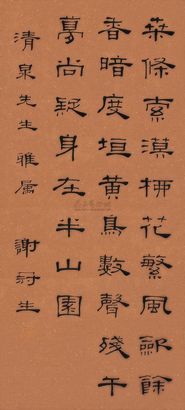 柴條索漠楝花繁風斂餘
香暗度垣黃鳥數聲殘午
夢尚疑身在半山園
清泉先生雅屬 謝冠生